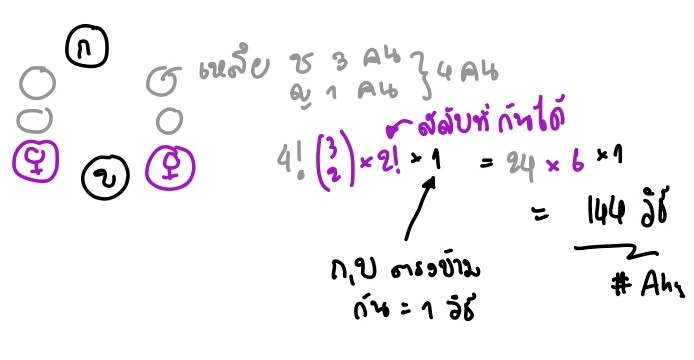 ก
เหลือ ช 3 คน
ญ 1 คน } 4 คน
สลับที่กันได้
4! (3 2) × 2! × 1 = 24 × 6 × 1
♀ ข ♀
= 144 วิธี
ก,ข ตรงข้าม
กัน = 1 วิธี
# Ans